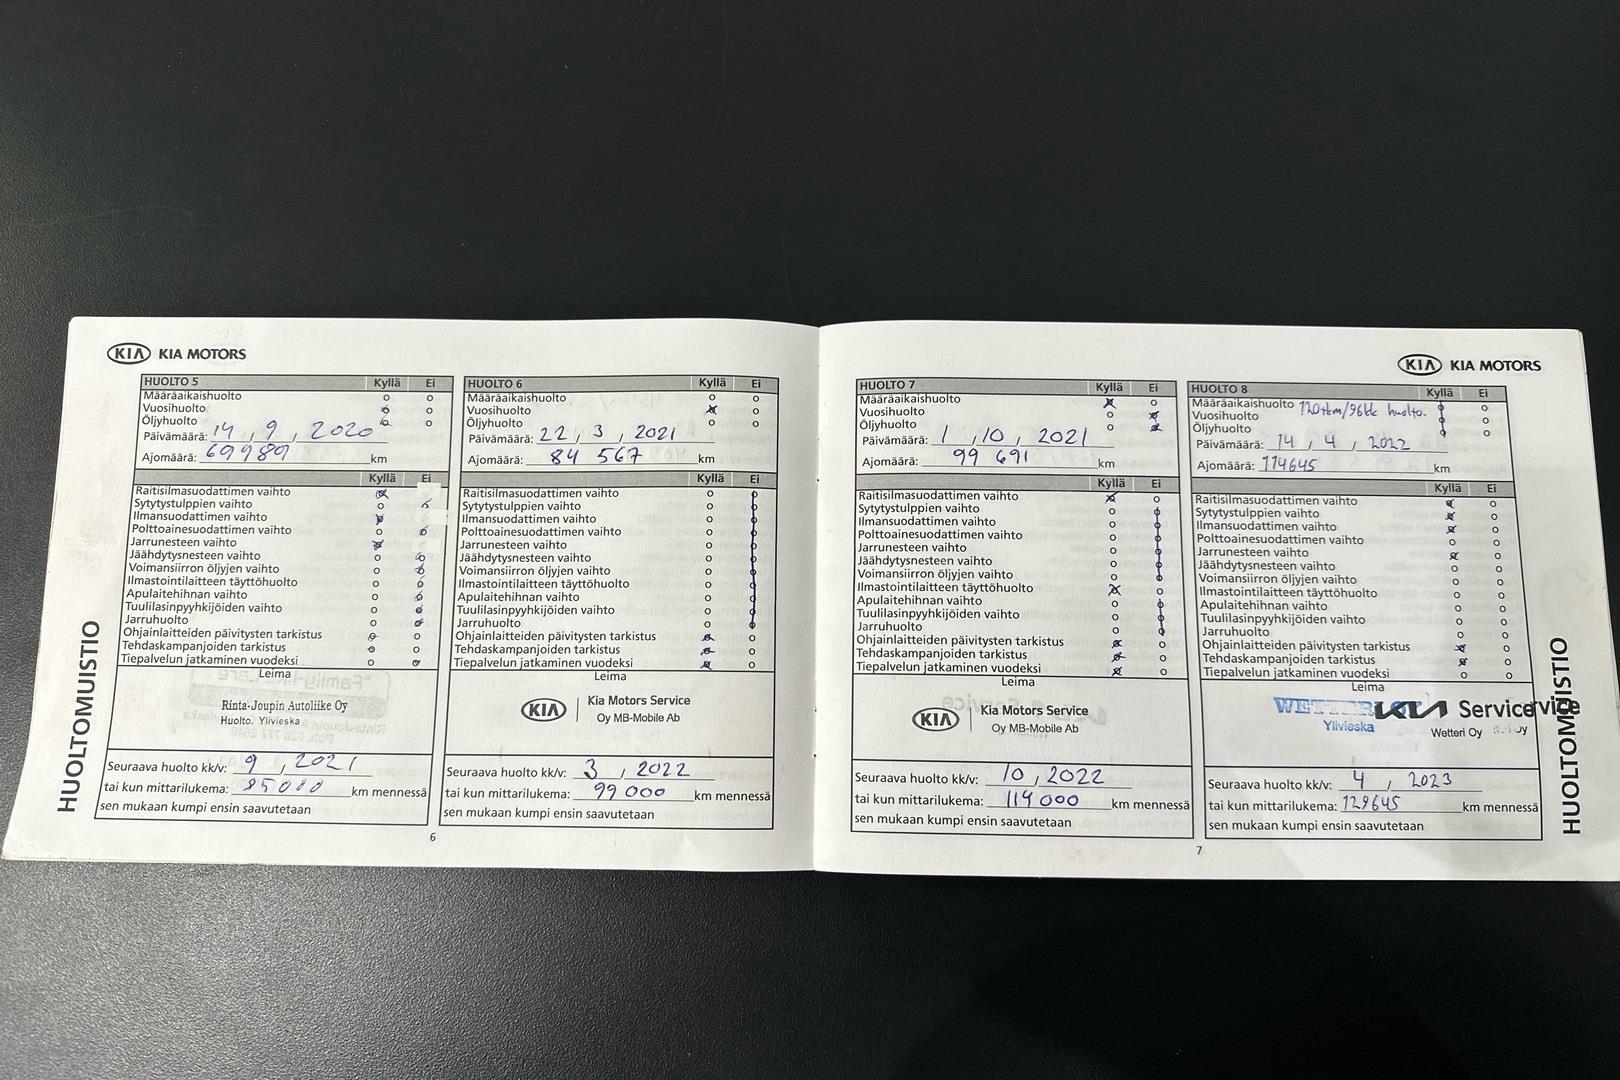 KIA KIA MOTORS
HUOLTO 5 Kyllä Ei
Määräaikaishuolto
Vuosihuolto
Öljyhuolto
Päivämäärä: 14, 9, 2020
Ajomäärä: 69989 km
Kyllä Ei
Raitisilmasuodattimen vaihto
Sytytystulppien vaihto
Ilmansuodattimen vaihto
Polttoainesuodattimen vaihto
Jarrunesteen vaihto
Jäähdytysnesteen vaihto
Voimansiirron öljyjen vaihto
Ilmastointilaitteen täyttöhuolto
Apulaitehihnan vaihto
Tuulilasinpyyhkijöiden vaihto
Jarruhuolto
Ohjainlaitteiden päivitysten tarkistus
Tehdaskampanjoiden tarkistus
Tiepalvelun jatkaminen vuodeksi
Leima
Rinta-Joupin Autoliike Oy
Huolto. Ylivieska
Seuraava huolto kk/v: 9, 2021
tai kun mittarilukema: 85000 km mennessä
sen mukaan kumpi ensin saavutetaan
HUOLTOMUISTIO
HUOLTO 6 Kyllä Ei
Määräaikaishuolto
Vuosihuolto
Öljyhuolto
Päivämäärä: 22, 3, 2021
Ajomäärä: 84 567 km
Kyllä Ei
Raitisilmasuodattimen vaihto
Sytytystulppien vaihto
Ilmansuodattimen vaihto
Polttoainesuodattimen vaihto
Jarrunesteen vaihto
Jäähdytysnesteen vaihto
Voimansiirron öljyjen vaihto
Ilmastointilaitteen täyttöhuolto
Apulaitehihnan vaihto
Tuulilasinpyyhkijöiden vaihto
Jarruhuolto
Ohjainlaitteiden päivitysten tarkistus
Tehdaskampanjoiden tarkistus
Tiepalvelun jatkaminen vuodeksi
Leima
KIA Kia Motors Service
Oy MB-Mobile Ab
Seuraava huolto kk/v: 3, 2022
tai kun mittarilukema: 99 000 km mennessä
sen mukaan kumpi ensin saavutetaan
6
HUOLTO 7 Kyllä Ei
Määräaikaishuolto
Vuosihuolto
Öljyhuolto
Päivämäärä: 1, 10, 2021
Ajomäärä: 99 691 km
Kyllä Ei
Raitisilmasuodattimen vaihto
Sytytystulppien vaihto
Ilmansuodattimen vaihto
Polttoainesuodattimen vaihto
Jarrunesteen vaihto
Jäähdytysnesteen vaihto
Voimansiirron öljyjen vaihto
Ilmastointilaitteen täyttöhuolto
Apulaitehihnan vaihto
Tuulilasinpyyhkijöiden vaihto
Jarruhuolto
Ohjainlaitteiden päivitysten tarkistus
Tehdaskampanjoiden tarkistus
Tiepalvelun jatkaminen vuodeksi
Leima
KIA Kia Motors Service
Oy MB-Mobile Ab
Seuraava huolto kk/v: 10, 2022
tai kun mittarilukema: 114 000 km mennessä
sen mukaan kumpi ensin saavutetaan
KIA KIA MOTORS
HUOLTO 8 Kyllä Ei
Määräaikaishuolto 120tkm/96kk huolto.
Vuosihuolto
Öljyhuolto
Päivämäärä: 14, 4, 2022
Ajomäärä: 114645 km
Kyllä Ei
Raitisilmasuodattimen vaihto
Sytytystulppien vaihto
Ilmansuodattimen vaihto
Polttoainesuodattimen vaihto
Jarrunesteen vaihto
Jäähdytysnesteen vaihto
Voimansiirron öljyjen vaihto
Ilmastointilaitteen täyttöhuolto
Apulaitehihnan vaihto
Tuulilasinpyyhkijöiden vaihto
Jarruhuolto
Ohjainlaitteiden päivitysten tarkistus
Tehdaskampanjoiden tarkistus
Tiepalvelun jatkaminen vuodeksi
Leima
KIA Service
Ylivieska Wetteri Oy
Seuraava huolto kk/v: 4, 2023
tai kun mittarilukema: 129645 km mennessä
sen mukaan kumpi ensin saavutetaan
HUOLTOMUISTIO
7